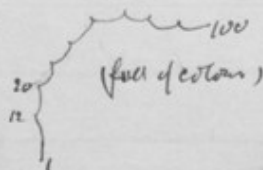 100
20 (full of colours)
12
1